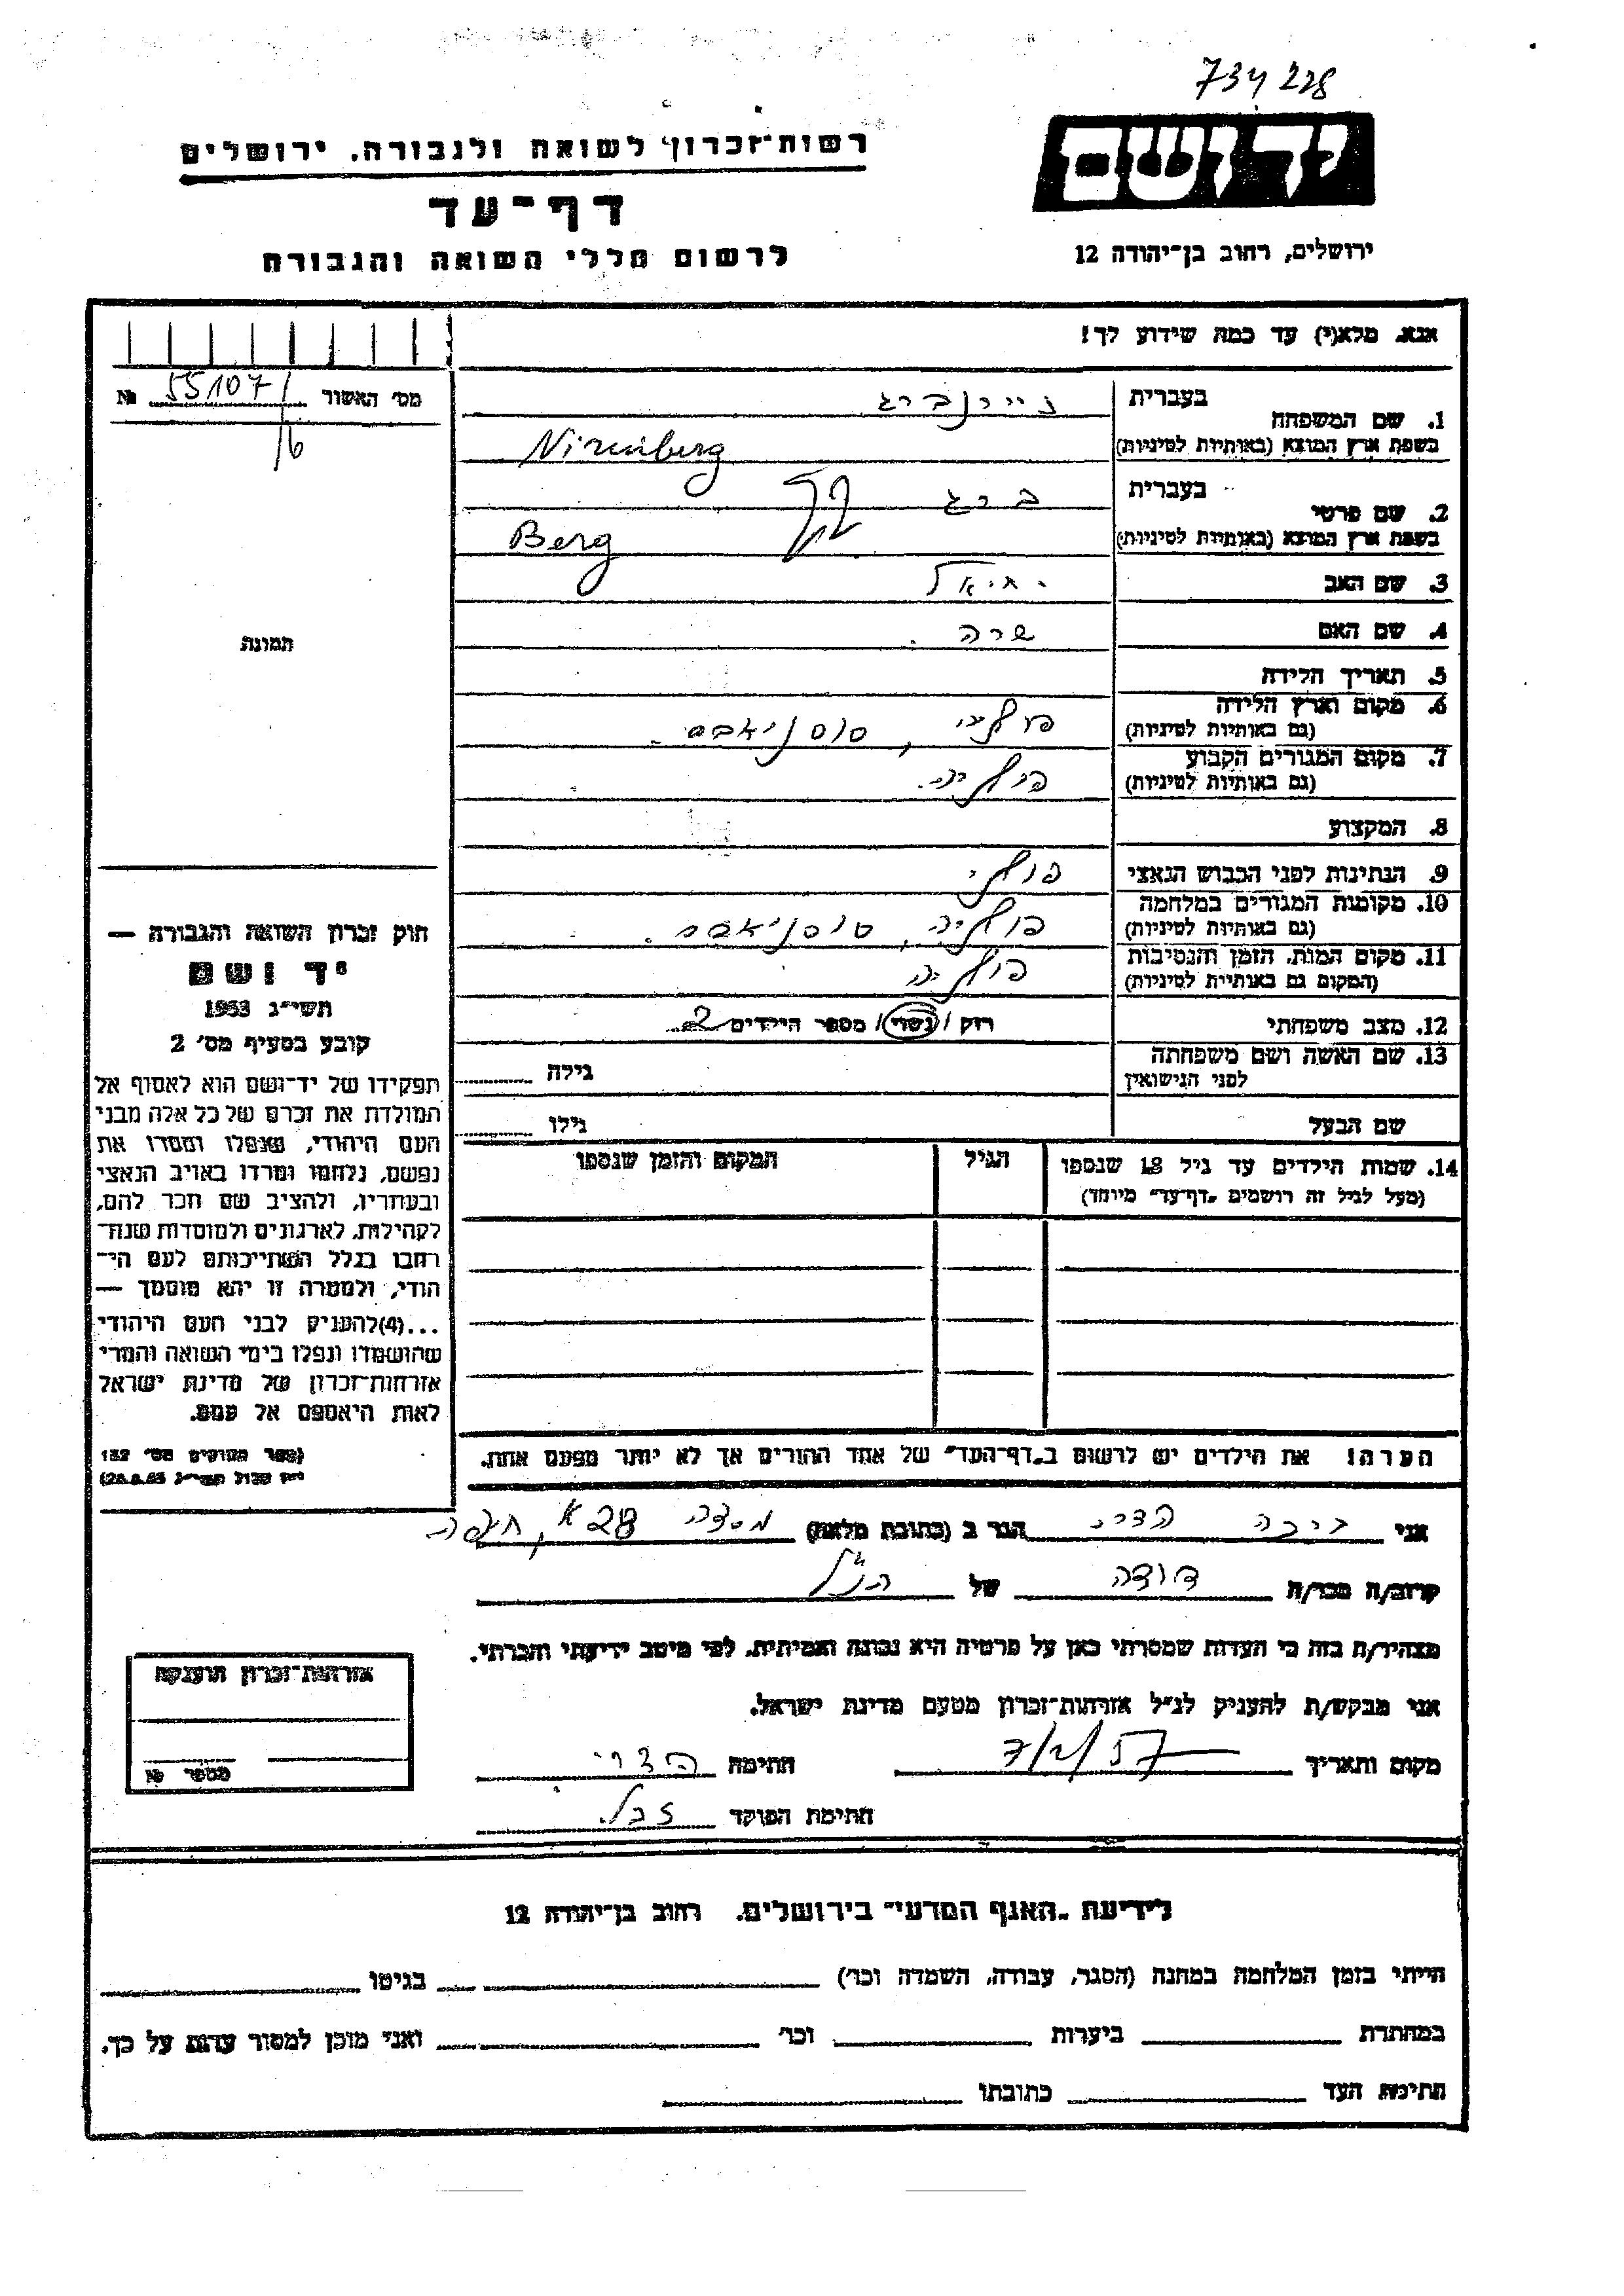 734228
יד ושם
רשות־זכרון לשואה ולגבורה, ירושלים
דף־עד
לרשום חללי השואה והגבורה
ירושלים, רחוב בן־יהודה 12
אנא, מלא(י) עד כמה שידוע לך!
מס׳ האשור 55107 №
16
1. שם המשפחה
בעברית ניירנברג
בשפת ארץ המוצא (באותיות לטיניות) Nirenberg
2. שם פרטי
בעברית ברג
בשפת ארץ המוצא (באותיות לטיניות) Berg
3. שם האב יחיאל
4. שם האם שרה
5. תאריך הלידה
6. מקום וארץ הלידה פולניה,
(גם באותיות לטיניות)
7. מקום המגורים הקבוע פולניה
(גם באותיות לטיניות)
8. המקצוע
9. הנתינות לפני הכבוש הנאצי פולני
10. מקומות המגורים במלחמה פולניה,
(גם באותיות לטיניות)
11. מקום המות, הזמן והנסיבות פולניה
(המקום גם באותיות לטיניות)
12. מצב משפחתי רוק / נשוי / מספר הילדים 2
13. שם האשה ושם משפחתה
לפני הנישואין
גילה
שם הבעל גילו
14. שמות הילדים עד גיל 18 שנספו
(מעל לגיל זה רושמים „דף־עד״ מיוחד)
הגיל
המקום והזמן שנספו
הערה! את הילדים יש לרשום ב„דף־העד״ של אחד ההורים אך לא יותר מפעם אחת.
תמונת
חוק זכרון השואה והגבורה —
יד ושם
תשי״ג 1953
קובע בסעיף מס׳ 2
תפקידו של יד־ושם הוא לאסוף אל
המולדת את זכרם של כל אלה מבני
העם היהודי, שנפלו ומסרו את
נפשם, נלחמו ומרדו באויב הנאצי
ובעוזריו, ולהציב שם וזכר להם,
לקהילות, לארגונים ולמוסדות שנח־
רבו בגלל השתייכותם לעם הי־
הודי, ולמטרה זו יהא מוסמך —
...(4) להעניק לבני העם היהודי
שהושמדו ונפלו בימי השואה והמרי
אזרחות־זכרון של מדינת ישראל
לאות היאספם אל עמם.
(ספר החוקים מס׳ 132
אני רבקה הדרי הגר ב (כתובת מלאה) מסדה 28 א, חיפה
קרוב/ה מכר/ה דודה של הנ״ל
מצהיר/ה בזה כי העדות שמסרתי כאן על פרטיה היא נכונה ואמיתית, לפי מיטב ידיעתי והכרתי.
אני מבקש/ת להעניק לנ״ל אזרחות־זכרון מטעם מדינת ישראל.
מקום ותאריך 7/2/57 חתימה הדרי
חתימת הפוקד
אזרחות־זכרון הוענקה
מספר №
לידיעת „האגף המדעי״ בירושלים, רחוב בן־יהודה 12
הייתי בזמן המלחמה במחנה (הסגר, עבודה, השמדה וכו׳) בגיטו
במחתרת ביערות וכו׳ ואני מוכן למסור עדות על כך.
חתימת העד כתובתו